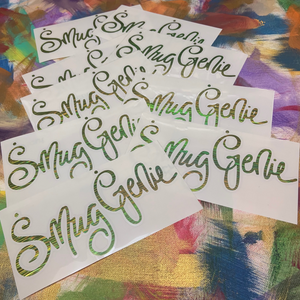 Smug
Genie
Smug Genie
Smug Genie
Smug Genie
Smug Genie
Smug Genie
mug Genie
Smug Genie